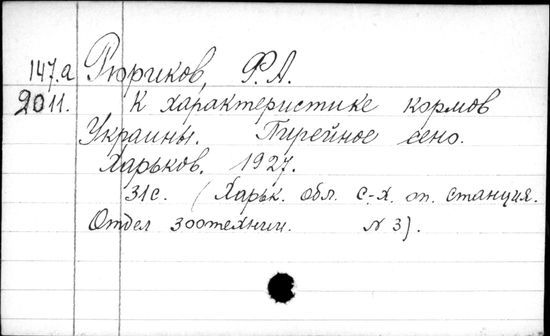 147.а Рюриков, Ф.А.
2011. К характеристике кормов
Украины. Пирейное сено.
Харьков. 1927.
31с. (Харьк. обл. с-х. оп. станция.
Отдел зоотехнии. N 3).